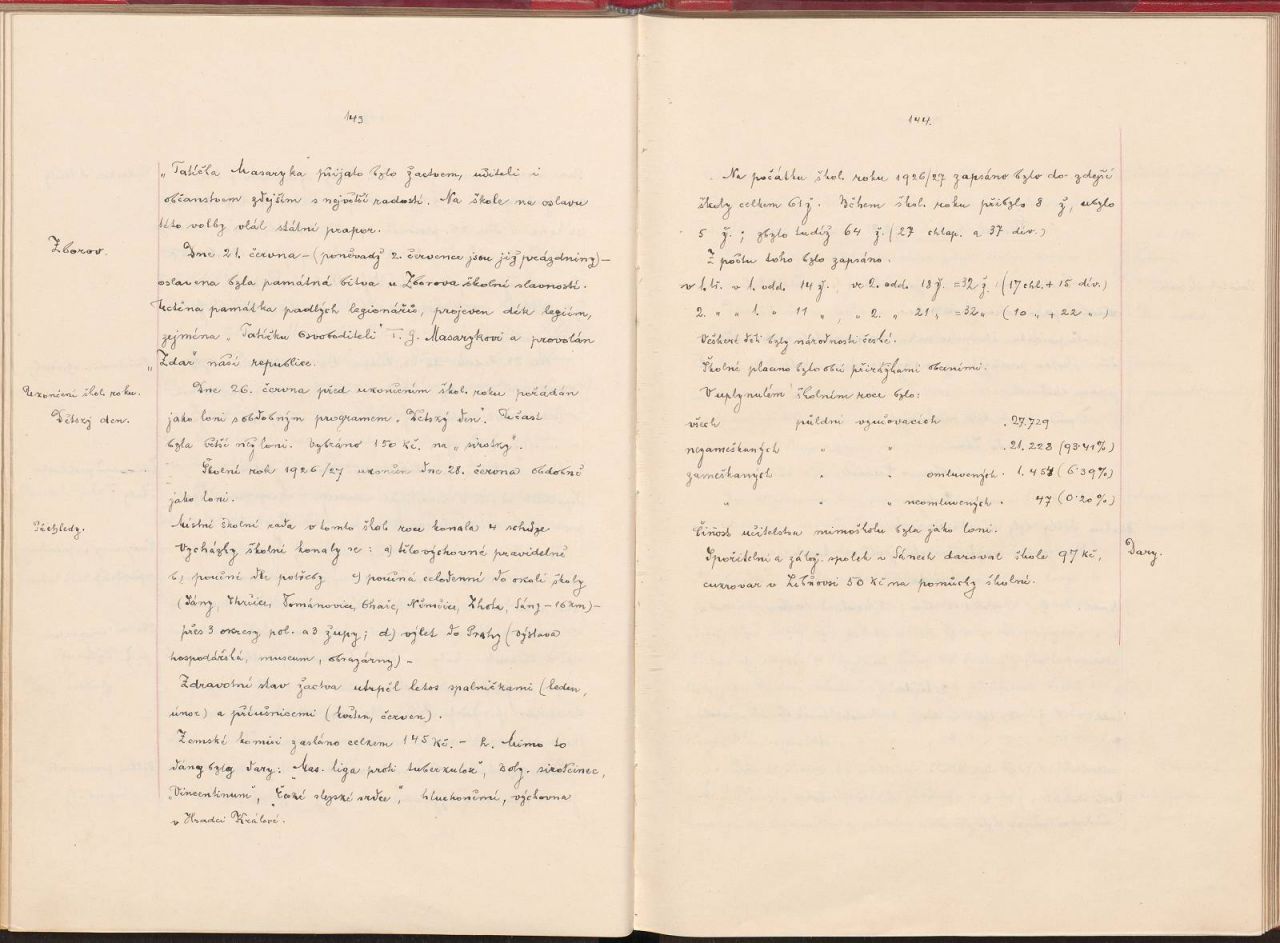 143
„Tatíčka Masaryka přijato bylo žactvem, učiteli i
občanstvem zdejším s největší radostí. Na škole na oslavu
této volby vlál státní prapor.
Zborov.
Dne 21. června – (poněvadž 2. července jsou již prázdniny) –
oslavena byla památná bitva u Zborova školní slavností.
Uctěna památka padlých legionářů, projeven dík legiím,
zejména „Tatíčku Osvoboditeli" T. G. Masarykovi a provolán
„Zdar" naší republice.
Ukončení škol. roku.
Dne 26. června před ukončením škol. roku pořádán
Dětský den.
jako loni s obdobným programem „Dětský den". Účast
byla větší než loni. Vybráno 150 Kč. na „sirotky".
Školní rok 1926/27 ukončen dne 28. června obdobně
jako loni.
Přehledy.
Místní školní rada v tomto škol. roce konala 4 schůze
Vycházky školní konaly se: a) tělovýchovné pravidelně
b) poučné dle potřeby c) poučná celodenní do okolí školy
(Sány, Hrčice, Tománovice, Chaře, Němčice, Lhota, Sány – 16 km) –
přes 3 okresy pol. a 3 župy; d) výlet do Prahy (výstava
hospodářská, museum, obrazárny) –
Zdravotní stav žactva utrpěl letos spalničkami (leden,
únor) a příušnicemi (květen, červen).
Zemské komisi zasláno celkem 145 Kč. – h. Mimo to
dány byly dary: „Mas. liga proti tuberkulose", Boly. sirotčinec,
„Vincentinum", „České slepecké srdce", hluchoněmí, výchovna
v Hradci Králové.
144.
Na počátku škol. roku 1926/27 zapsáno bylo do zdejší
školy celkem 61 ž. Během škol. roku přibylo 8 ž, ubylo
5 ž.; zbylo tudíž 64 ž. (27 chlap. a 37 dív.)
Z počtu toho bylo zapsáno.
v 1. tř. v 1. odd. 14 ž., ve 2. odd. 18 ž. = 32 ž. (17 chl. + 15 dív.)
2. „ „ 1. „ 11 „, „ 2. „ 21 „ = 32 „ (10 „ + 22 „)
Veškeré děti byly národnosti české.
Školné placeno bylo obcí přirážkami obecními.
V uplynulém školním roce bylo:
všech půldní vyučovacích . 27.729
nezameškaných „ „ . 21.228 (93·41%)
zameškaných „ omluvených . 1.454 (6·39%)
„ „ neomluvených . 47 (0·20%)
Činost učitelstva mimoškolní byla jako loni.
Spořitelní a zálož. spolek v Sánech daroval škole 97 Kč,
Dary.
cukrovar v Libňovsi 50 Kč na pomůcky školní.